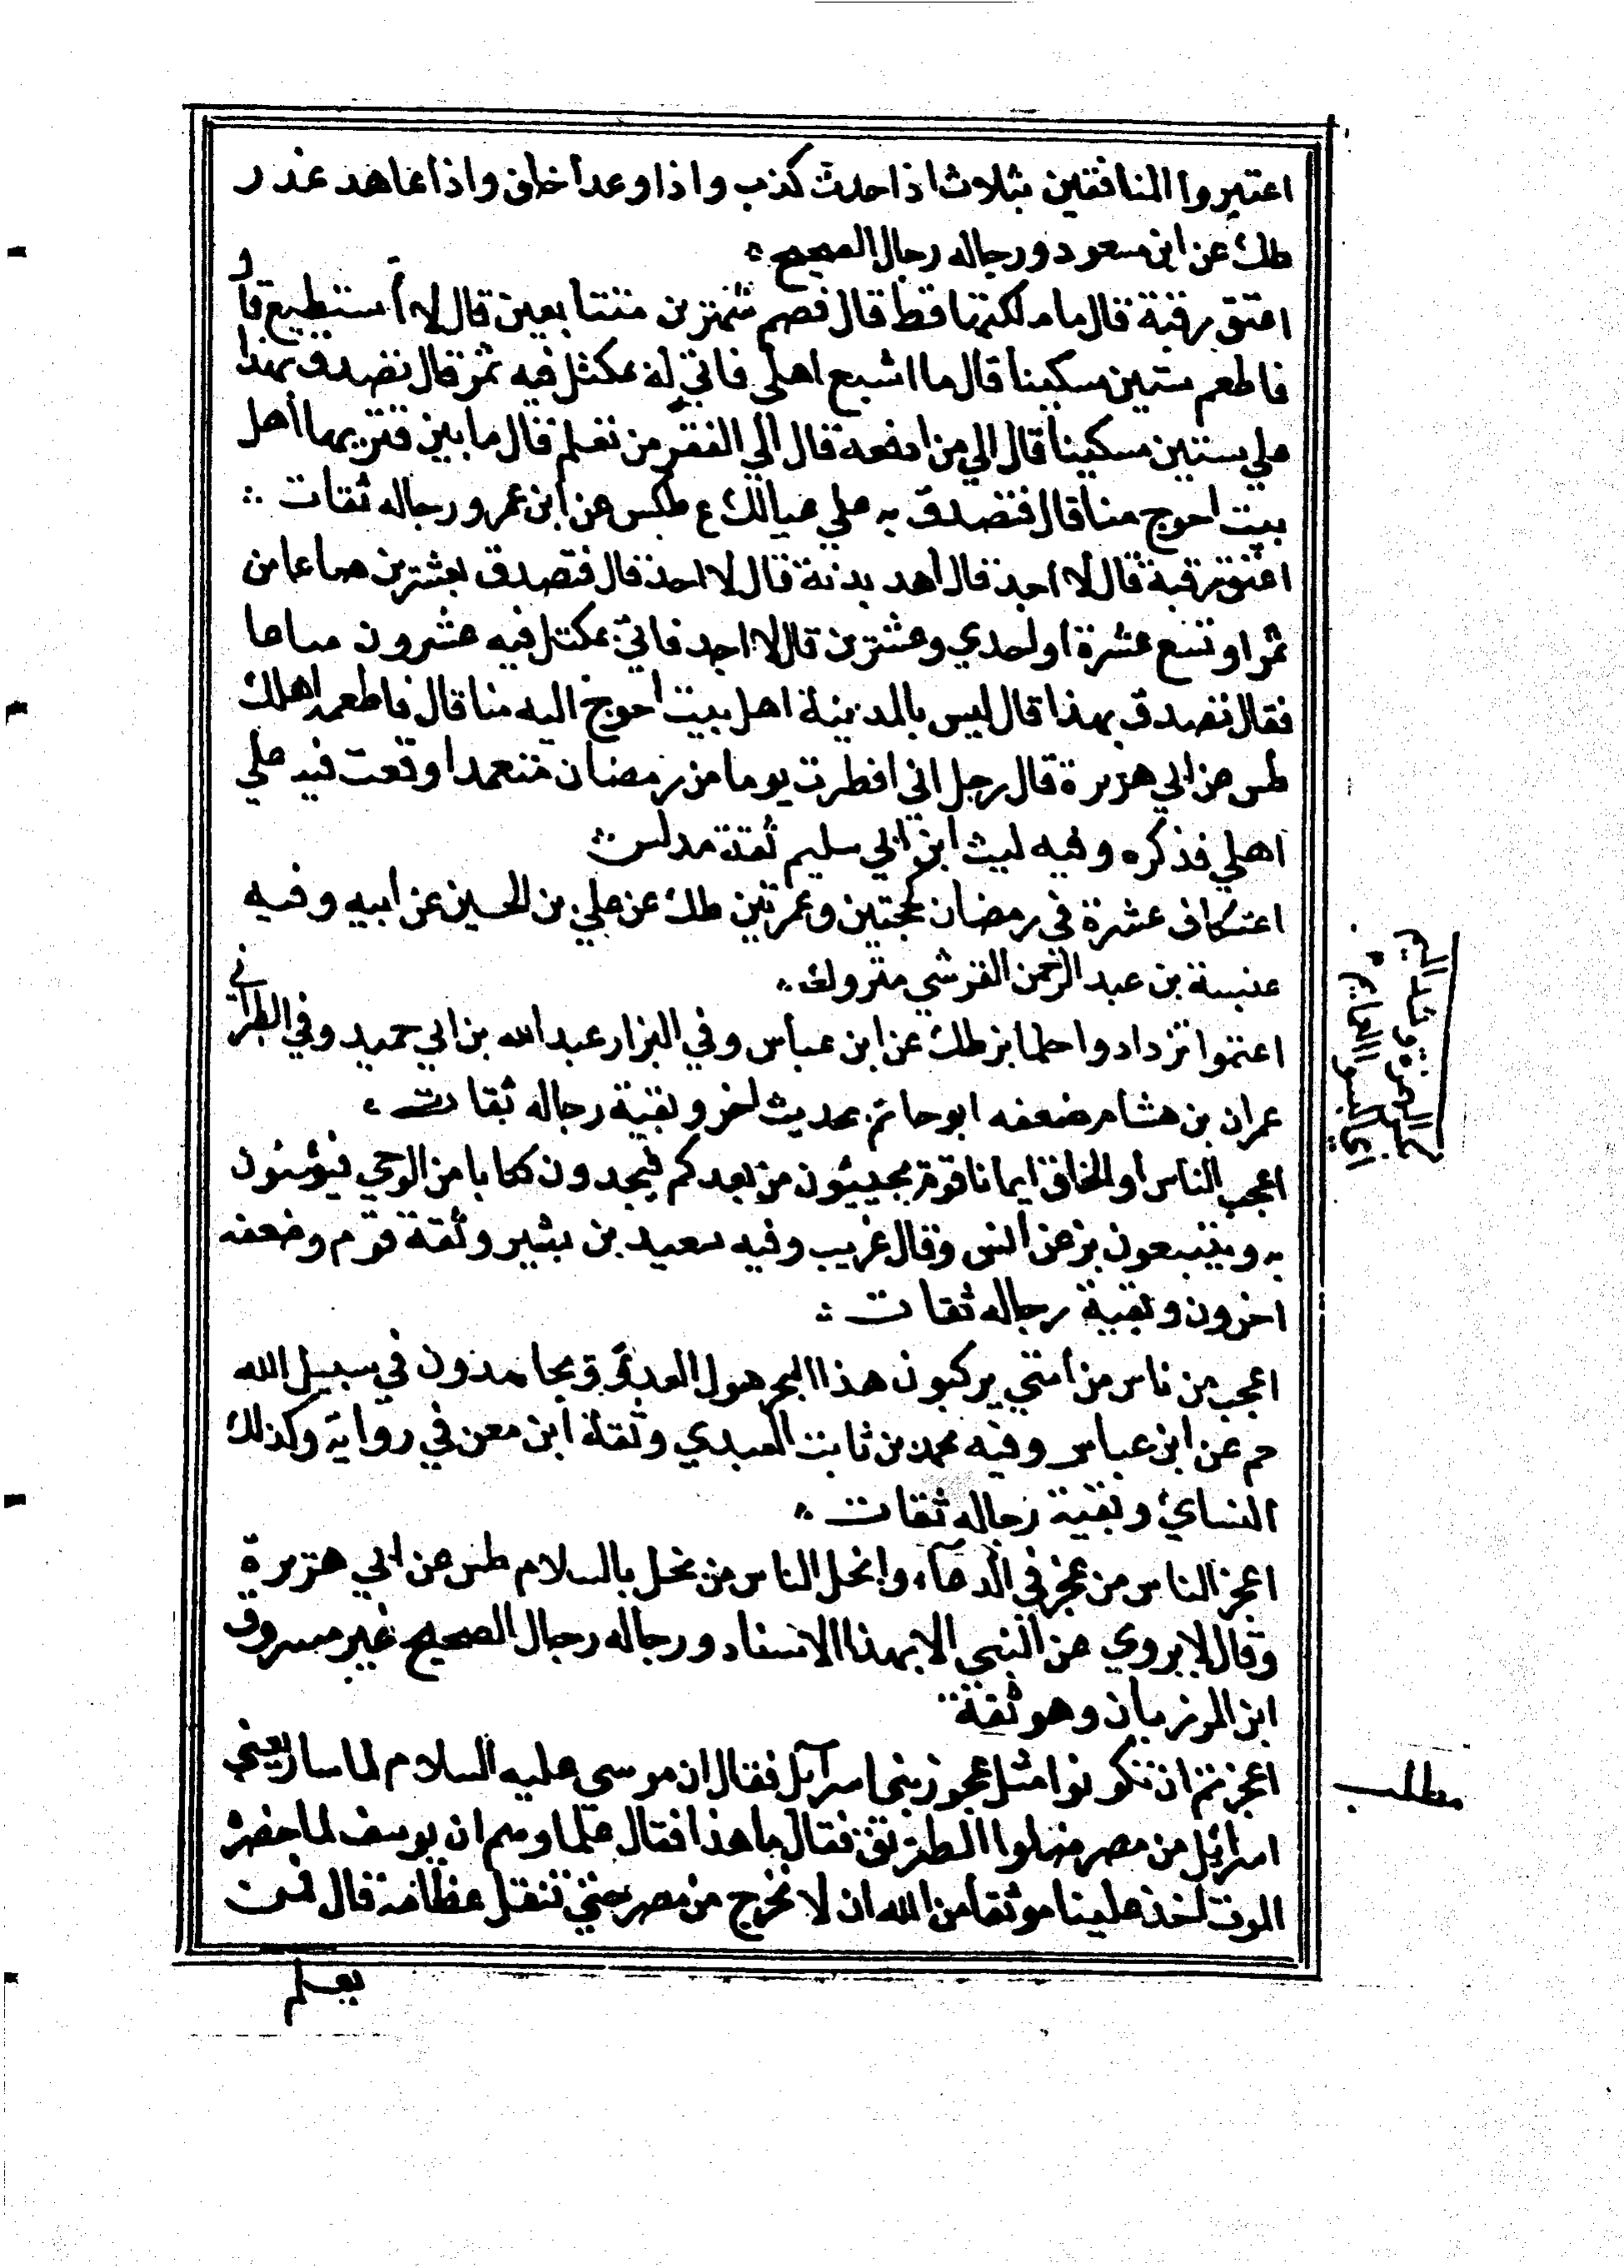 اعتبروا المنافقين بثلاث اذا حدث كذب واذا وعد اخلف واذا عاهد غدر
طك عن ابن مسعود ورجاله رجال الصحيح
اعتق رقبة قال ما ملكتها قط قال فصم شهرين متتابعين قال لا أستطيع قال
فاطعم ستين مسكينا قال ما اشبع اهلي فاتي له بمكتل فيه تمر قال تصدق بهذا
علي ستين مسكينا قال الي من ادفعه قال الي افقر من تعلم قال ما بين قتريها أهل
بيت احوج منا قال فتصدق به علي عيالك ع طكس عن ابن عمر ورجاله ثقات
اعتق رقبة قال لا اجد قال أهد بدنة قال لا اجد قال فتصدق بعشرين صاعا من
تمر او تسع عشرة او احدي وعشرين قال لا اجد فاتي بمكتل فيه عشرون صاعا
فقال تصدق بهذا قال ليس بالمدينة اهل بيت احوج اليه منا قال فاطعمه اهلك
طس عن ابي هريرة قال رجل اني افطرت يوما من رمضان متعمدا وقعت فيه علي
اهلي فذكره وفيه ليث ابن ابي سليم ثقة مدلس
اعتكاف عشرة في رمضان كحجتين وعمرتين طك عن علي بن الحسين عن ابيه وفيه
عنبسة بن عبد الرحمن القرشي متروك
اعتموا تزدادوا حلما بز طك عن ابن عباس وفي البزار عبد الله بن ابي حميد وفي الطبراني
عمران بن هشام ضعفه ابو حاتم بحديث اخر وبقية رجاله ثقات
اعجب الناس او الخلق ايمانا قوم يجيئون من بعدكم فيجدون كتابا من الوحي فيؤمنون
به ويتبعون بز عن انس وقال غريب وفيه سعيد بن بشير وثقة قوم وضعفه
اخرون وبقية رجاله ثقات
اعجب من ناس من أمتي يركبون هذا البحر هول العدو ويجاهدون في سبيل الله
حم عن ابن عباس وفيه محمد بن ثابت العبدي وثقة ابن معن في رواية وكذلك
النسائ وبقية رجاله ثقات
اعجز الناس من عجز في الدعآء وابخل الناس من بخل بالسلام طس عن ابي هريرة
وقال لا يروي عن النبي الا بهذا الاسناد ورجاله رجال الصحيح غير مسروق
ابن المرزبان وهو ثقة
مطلب
اعجزتم ان تكونوا مثل عجوز بني اسرآيل فقال ان موسي عليه السلام لما سار ببني
اسرائيل من مصر ضلوا الطريق فقال ما هذا فقال علماوهم ان يوسف لما حضره
الموت اخذ علينا موثقا من الله ان لا نخرج من مصر حتي ننقل عظامه قال فمن
يعلم